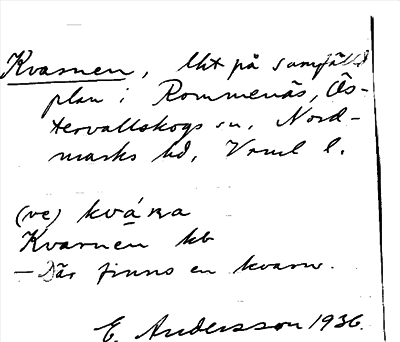 Kvarnen, lht på samfälld
plan i Rommenäs, Ös-
tervallskogs sn, Nord-
marks hd, Vrml l.
(ve) kváṇa
Kvarnen kb
– Där finns en kvarn.
E. Andersson 1936.